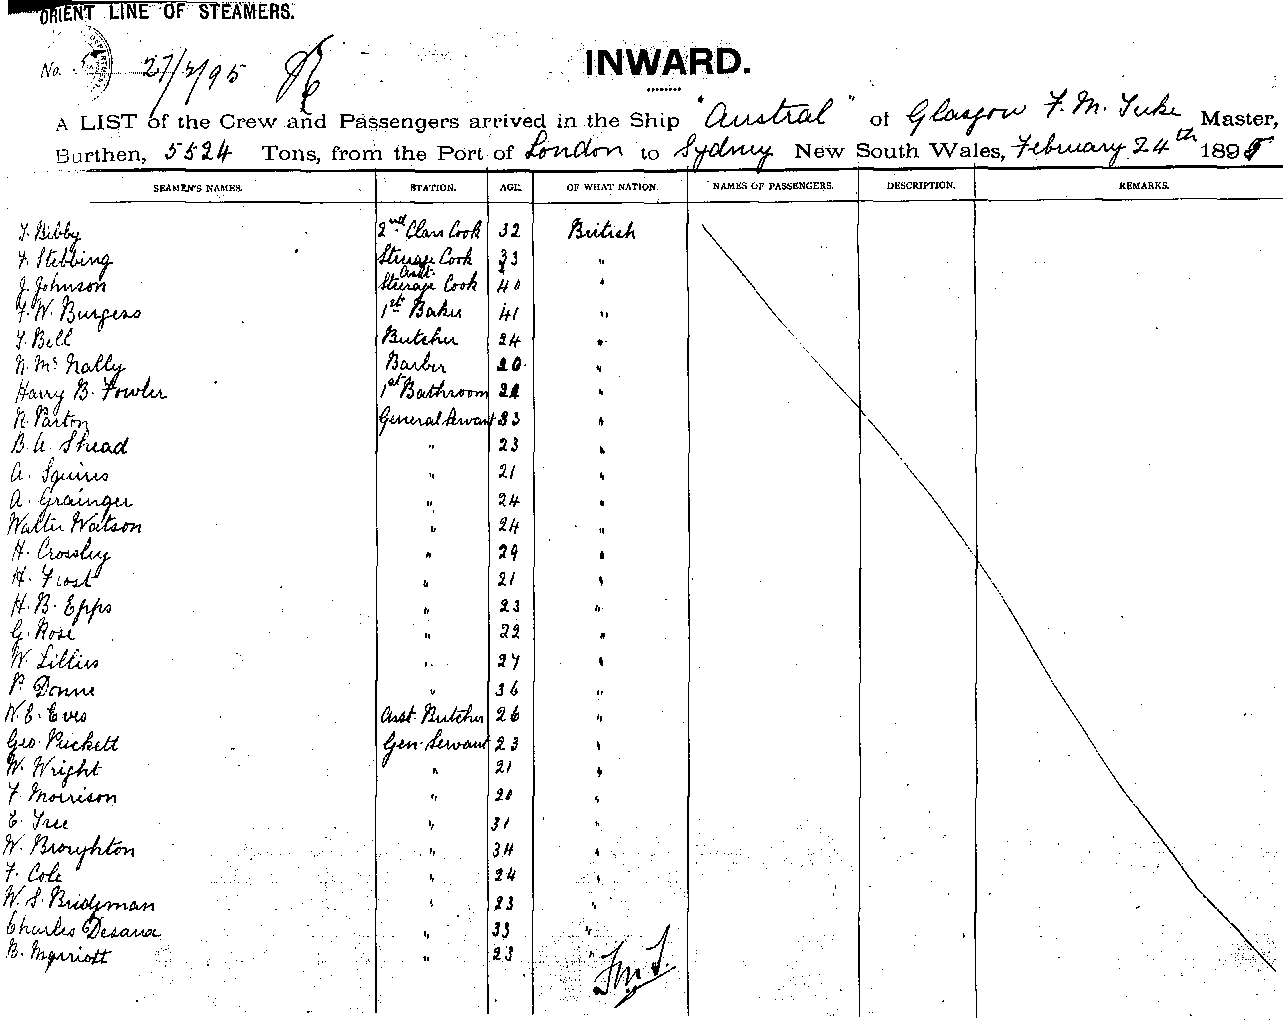 ORIENT LINE OF STEAMERS.
No. 27/2/95
INWARD.
A LIST of the Crew and Passengers arrived in the Ship "Austral" of Glasgow F. M. Tuke Master,
Burthen, 5524 Tons, from the Port of London to Sydney New South Wales, February 24th 1895
SEAMEN'S NAMES. STATION. AGE. OF WHAT NATION. NAMES OF PASSENGERS. DESCRIPTION. REMARKS.
T. Bibby 2nd Class Cook 32 British
F. Stebbing Steerage Cook 33 "
J. Johnson Asst. Steerage Cook 40 "
F. W. Burgess 1st Baker 41 "
T. Bell Butcher 24 "
N. McNally Barber 20 "
Harry B. Fowler 1st Bathroom "
R. Parton General Servant 33 "
B. A. Shead " 23 "
A. Squires " 21 "
A. Grainger " 24 "
Walter Watson " 24 "
H. Crossley " 29 "
H. Frost " 21 "
H. B. Epps " 23 "
G. Rose " 22 "
W. Lillies " 27 "
P. Donne " 36 "
W. E. Eves Asst. Butcher 26 "
Geo. Pickett Gen. Servant 23 "
W. Wright " 21 "
F. Morrison " 20 "
E. Tree " 31 "
W. Broughton " 34 "
F. Cole " 24 "
W. S. Bridgman " 23 "
Charles Desana " 33 "
B. Marriott " 23 "
F.M.T.